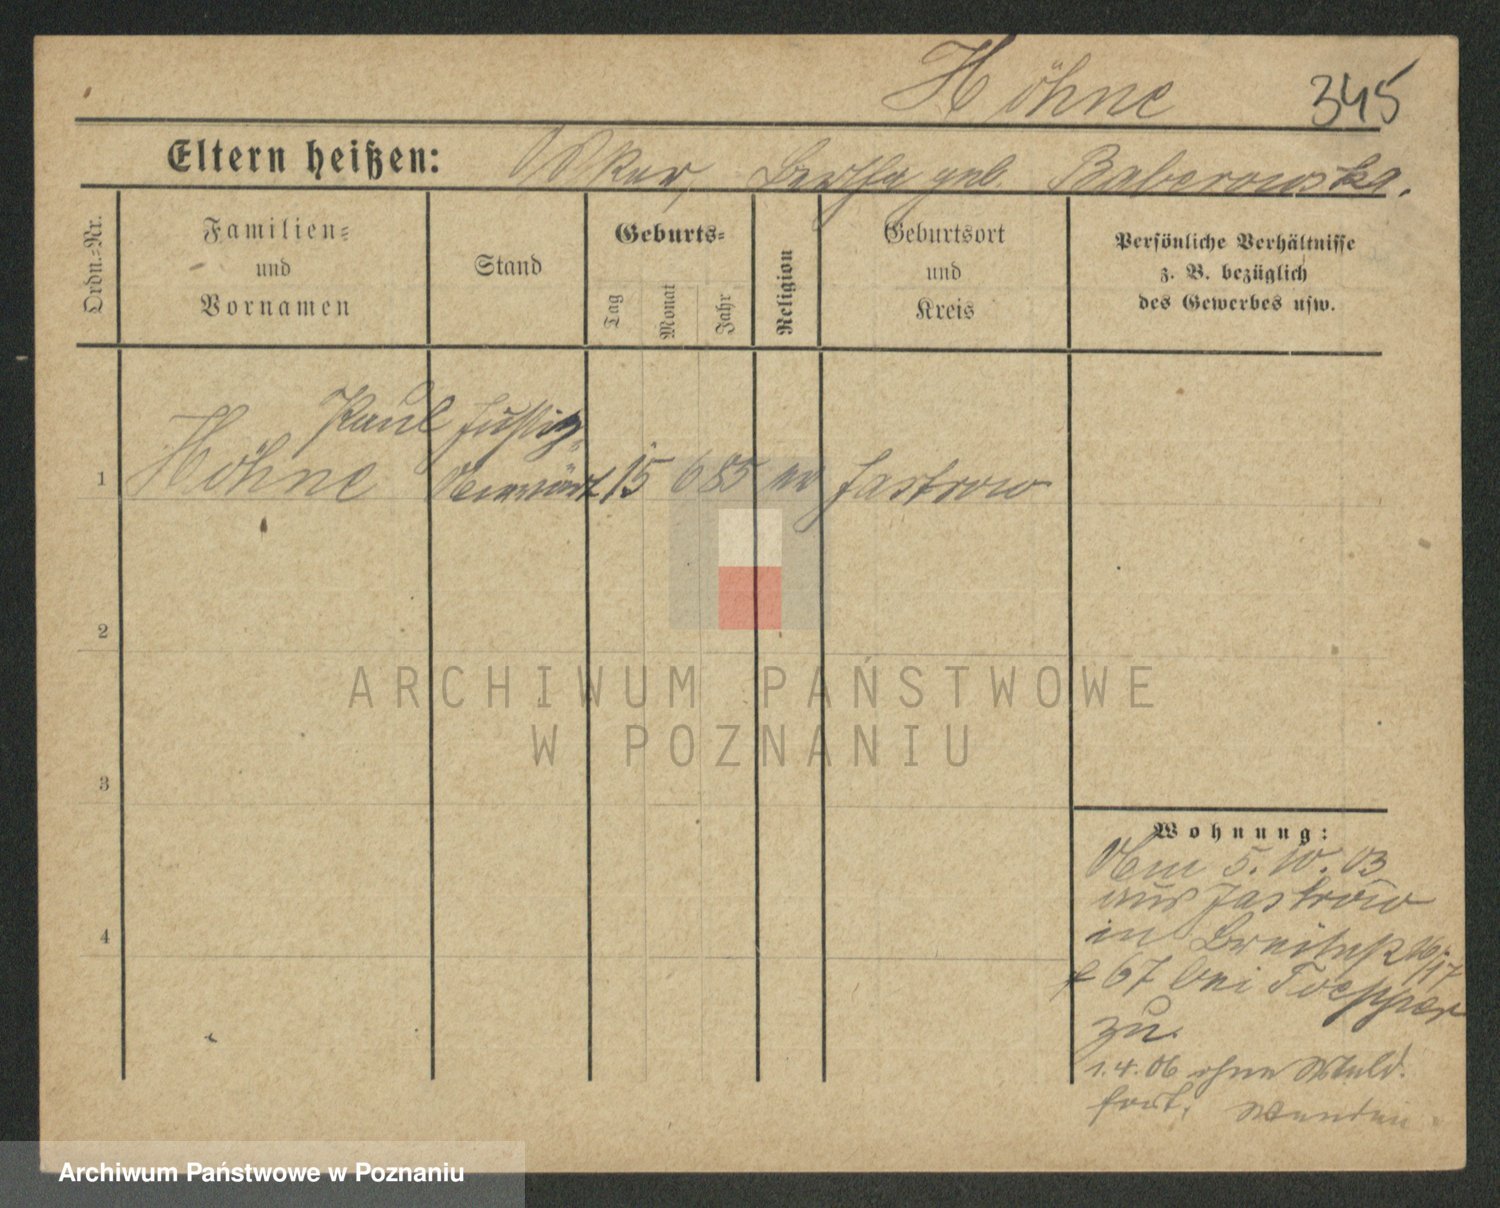 Höhne 345
Eltern heißen: Oskar, Bertha geb. Baberowska.
Ordn.-Nr.
Familien=
und
Vornamen
Stand
Geburts=
Tag
Monat
Jahr
Religion
Geburtsort
und
Kreis
Persönliche Verhältnisse
z. B. bezüglich
des Gewerbes usw.
Paul Justiz-
1 Höhne 15 6 85 ev Jastrow
2
3
4
ARCHIWUM PAŃSTWOWE
W POZNANIU
Wohnung:
5.10.03
aus Jastrow
in Breitestr
67 bei Toepper
zu.
1.4.06 ohne Meld.
fort.
Archiwum Państwowe w Poznaniu